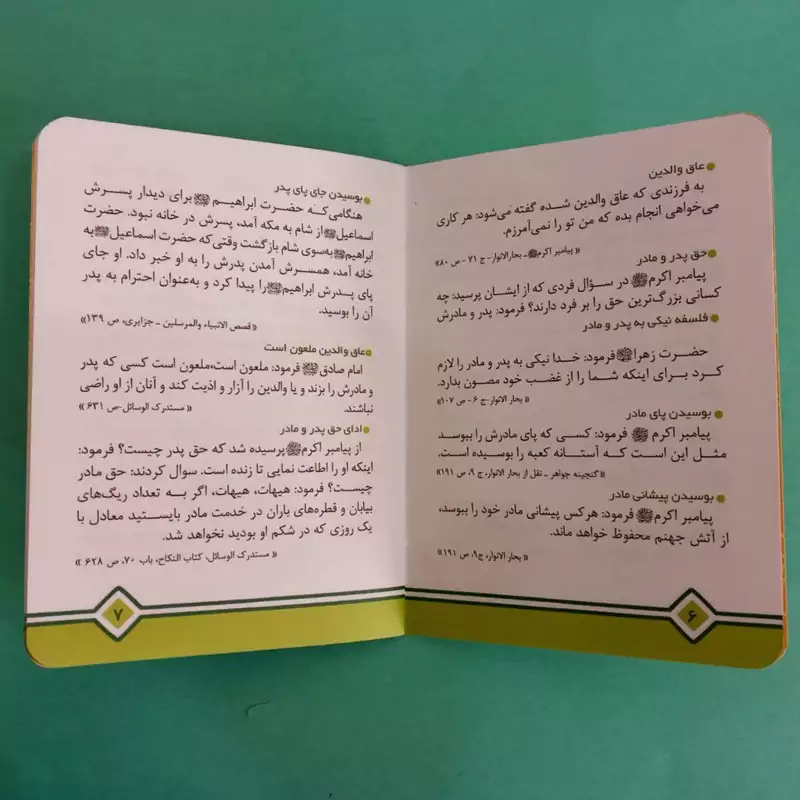 عاق والدین
به فرزندی که عاق والدین شده گفته می‌شود: هر کاری
می‌خواهی انجام بده که من تو را نمی‌آمرزم.
« پیامبر اکرمﷺ- بحارالانوار- ج ۷۱ - ص ۸۰»
حق پدر و مادر
پیامبر اکرمﷺ در سؤال فردی که از ایشان پرسید: چه
کسانی بزرگ‌ترین حق را بر فرد دارند؟ فرمود: پدر و مادرش
فلسفه نیکی به پدر و مادر
حضرت زهرا فرمود: خدا نیکی به پدر و مادر را لازم
کرد برای اینکه شما را از غضب خود مصون بدارد.
« بحار الانوار-ج ۶ - ص ۱۰۷»
بوسیدن پای مادر
پیامبر اکرم ﷺ فرمود: کسی که پای مادرش را ببوسد
مثل این است که آستانه کعبه را بوسیده است.
« گنجینه جواهر - نقل از بحار الانوار، ج ۹، ص ۱۹۱»
بوسیدن پیشانی مادر
پیامبر اکرمﷺ فرمود: هرکس پیشانی مادر خود را ببوسد،
از آتش جهنم محفوظ خواهد ماند.
« بحار الانوار، ج۹، ص ۱۹۱»
۶
بوسیدن جای پای پدر
هنگامی‌که حضرت ابراهیم برای دیدار پسرش
اسماعیل از شام به مکه آمد، پسرش در خانه نبود. حضرت
ابراهیم به‌سوی شام بازگشت وقتی‌که حضرت اسماعیل به
خانه آمد، همسرش آمدن پدرش را به او خبر داد. او جای
پای پدرش ابراهیم را پیدا کرد و به‌عنوان احترام به پدر
آن را بوسید.
« قصص الانبیاء والمرسلین - جزایری، ص ۱۳۹»
عاق والدین ملعون است
امام صادق فرمود: ملعون است،ملعون است کسی که پدر
و مادرش را بزند و یا والدین را آزار و اذیت کند و آنان از او راضی
نباشند.
« مستدرک الوسائل-ص ۶۳۱»
ادای حق پدر و مادر
از پیامبر اکرمﷺ پرسیده شد که حق پدر چیست؟ فرمود:
اینکه او را اطاعت نمایی تا زنده است. سوال کردند: حق مادر
چیست؟ فرمود: هیهات، هیهات، اگر به تعداد ریگ‌های
بیابان و قطره‌های باران در خدمت مادر بایستید معادل با
یک روزی که در شکم او بودید نخواهد شد.
« مستدرک الوسائل، کتاب النکاح، باب ۷۰، ص ۶۲۸ »
۷